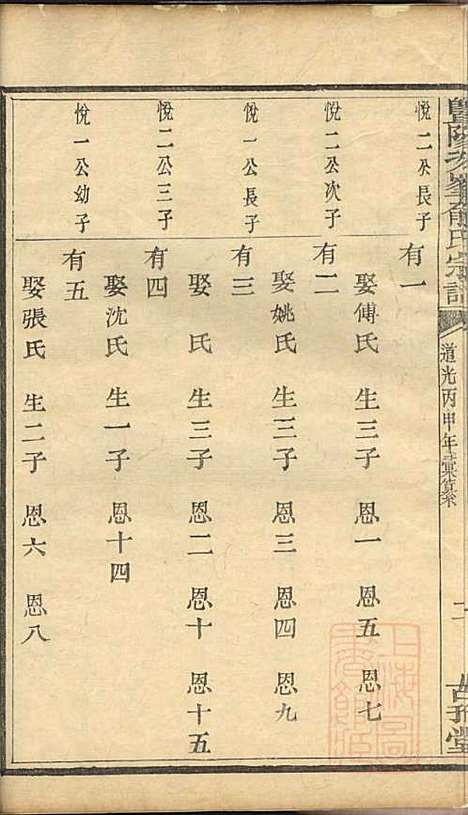 道光丙申年彙纂
悅二公長子
有一
娶傅氏 生三子 恩一 恩五 恩七
悅二公次子
有二
娶姚氏 生三子 恩三 恩四 恩九
悅一公長子
有三
娶 氏 生三子 恩二 恩十 恩十五
悅二公三子
有四
娶沈氏 生一子 恩十四
悅一公幼子
有五
娶張氏 生二子 恩六 恩八